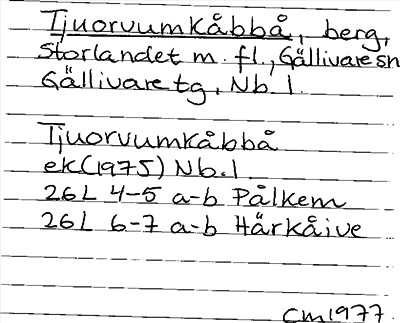 Tjuorvumkåbbå, berg,
Storlandet m. fl., Gällivare sn
Gällivare tg, Nb. l.
Tjuorvumkåbbå
ek(1975) Nb. l
26L 4-5 a-b Pålkem
26L 6-7 a-b Härkåive
CM1977